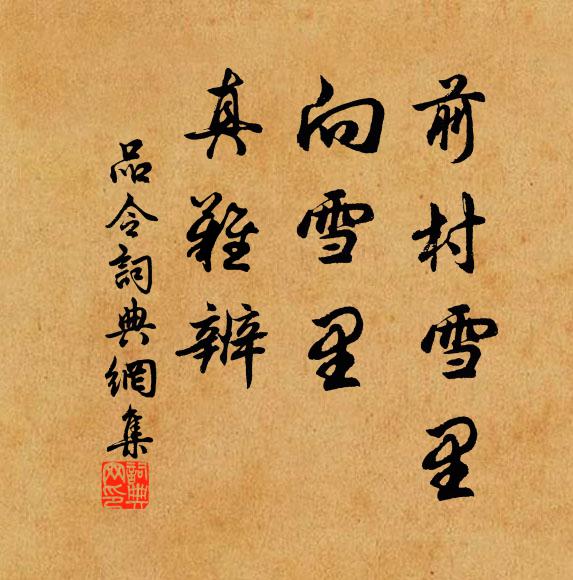 前村雪里
向雪里
真難辨
品令詞典網集
詞典
网印